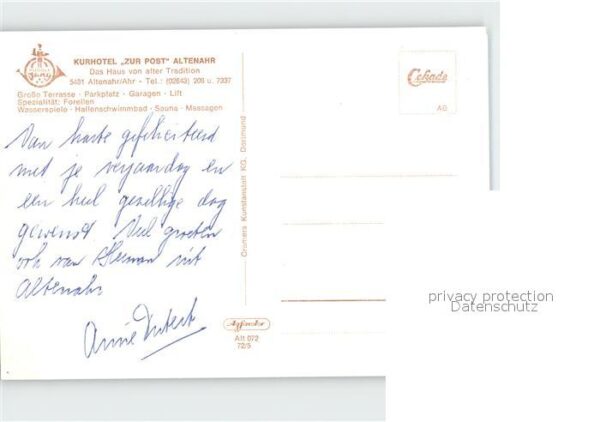 KURHOTEL „ZUR POST" ALTENAHR
Das Haus von alter Tradition
5481 Altenahr/Ahr - Tel.: (02643) 209 u. 7337
Große Terrasse · Parkplatz · Garagen · Lift
Spezialität: Forellen
Wasserspiele · Hallenschwimmbad · Sauna · Massagen
Van harte gefeliciteerd
met je verjaardag en
een heel gezellige dag
gewenst. Veel groeten
ook van Herman uit
Altenahr
Anne
Cekade
AG
Grümers Kunstanstalt KG, Dortmund
Alt 072
72/5
privacy protection
Datenschutz